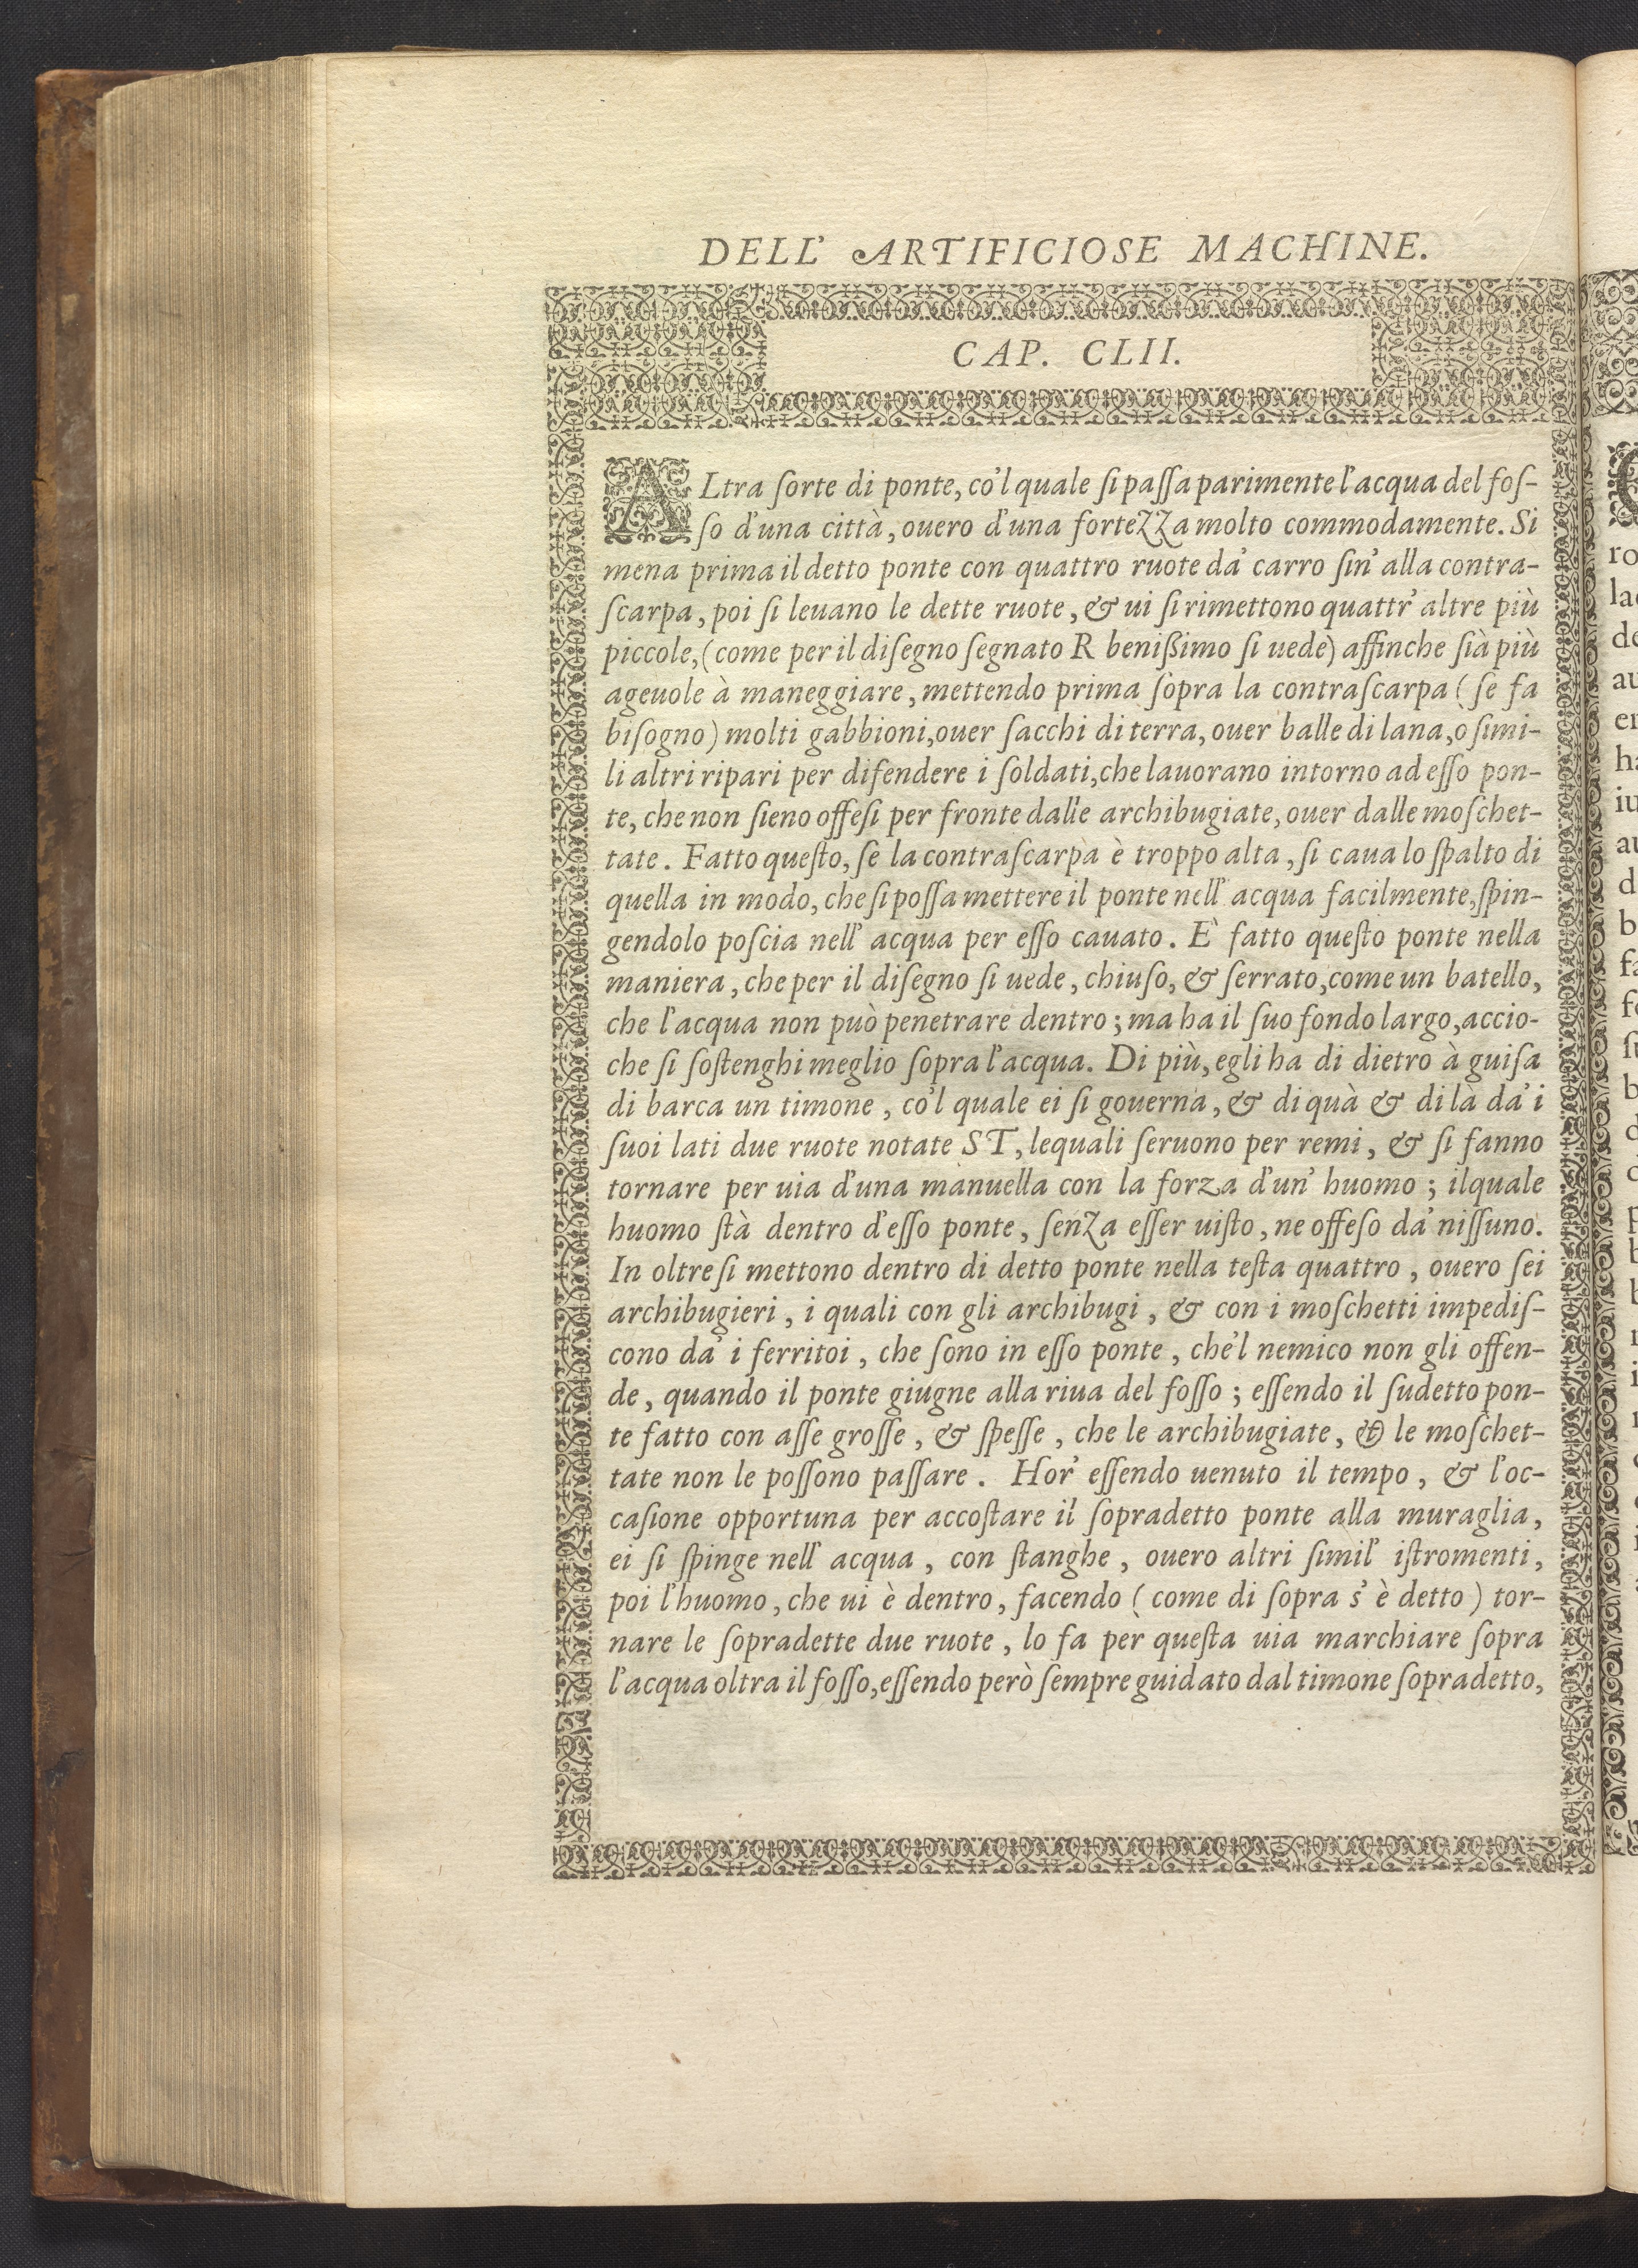 DELL' ARTIFICIOSE MACHINE.
CAP. CLII.
ALtra ſorte di ponte, co'l quale ſi paſſa parimente l'acqua del foſ-
ſo d'una città, ouero d'una fortezza molto commodamente. Si
mena prima il detto ponte con quattro ruote da' carro ſin' alla contra-
ſcarpa, poi ſi leuano le dette ruote, & ui ſi rimettono quattr' altre più
piccole, (come per il diſegno ſegnato R benißimo ſi uede) affinche ſià più
ageuole à maneggiare, mettendo prima ſopra la contraſcarpa (ſe fa
biſogno) molti gabbioni, ouer ſacchi di terra, ouer balle di lana, o ſimi-
li altri ripari per difendere i ſoldati, che lauorano intorno ad eſſo pon-
te, che non ſieno offeſi per fronte dalle archibugiate, ouer dalle moſchet-
tate. Fatto queſto, ſe la contraſcarpa è troppo alta, ſi caua lo ſpalto di
quella in modo, che ſi poſſa mettere il ponte nell' acqua facilmente, ſpin-
gendolo poſcia nell' acqua per eſſo cauato. È fatto queſto ponte nella
maniera, che per il diſegno ſi uede, chiuſo, & ſerrato, come un batello,
che l'acqua non può penetrare dentro; ma ha il ſuo fondo largo, accio-
che ſi ſoſtenghi meglio ſopra l'acqua. Di più, egli ha di dietro à guiſa
di barca un timone, co'l quale ei ſi gouerna, & di quà & di là da' i
ſuoi lati due ruote notate ST, lequali ſeruono per remi, & ſi fanno
tornare per uia d'una manuella con la forza d'un' huomo; ilquale
huomo ſtà dentro d'eſſo ponte, ſenza eſſer uiſto, ne offeſo da' niſſuno.
In oltre ſi mettono dentro di detto ponte nella teſta quattro, ouero ſei
archibugieri, i quali con gli archibugi, & con i moſchetti impediſ-
cono da' i ferritoi, che ſono in eſſo ponte, che'l nemico non gli offen-
de, quando il ponte giugne alla riua del foſſo; eſſendo il ſudetto pon-
te fatto con aſſe groſſe, & ſpeſſe, che le archibugiate, & le moſchet-
tate non le poſſono paſſare. Hor' eſſendo uenuto il tempo, & l'oc-
caſione opportuna per accoſtare il ſopradetto ponte alla muraglia,
ei ſi ſpinge nell' acqua, con ſtanghe, ouero altri ſimil' iſtromenti,
poi l'huomo, che ui è dentro, facendo (come di ſopra s' è detto) tor-
nare le ſopradette due ruote, lo fa per queſta uia marchiare ſopra
l'acqua oltra il foſſo, eſſendo però ſempre guidato dal timone ſopradetto,